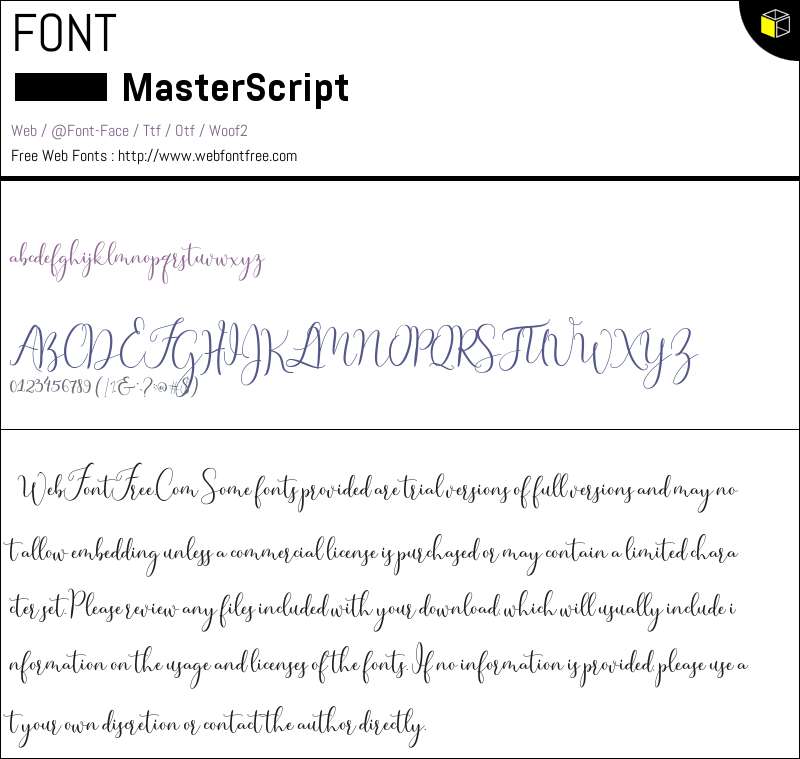 FONT
MasterScript
Web / @Font-Face / Ttf / Otf / Woof2
Free Web Fonts : http://www.webfontfree.com
abcdefghijklmnopqrstuvwxyz
ABCDEFGHIJKLMNOPQRSTUVWXYZ
0123456789
WebFontFree.Com Some fonts provided are trial versions of full versions and may no
t allow embedding unless a commercial license is purchased or may contain a limited chara
cter set. Please review any files included with your download, which will usually include i
nformation on the usage and licenses of the fonts. If no information is provided, please use a
t your own discretion or contact the author directly.